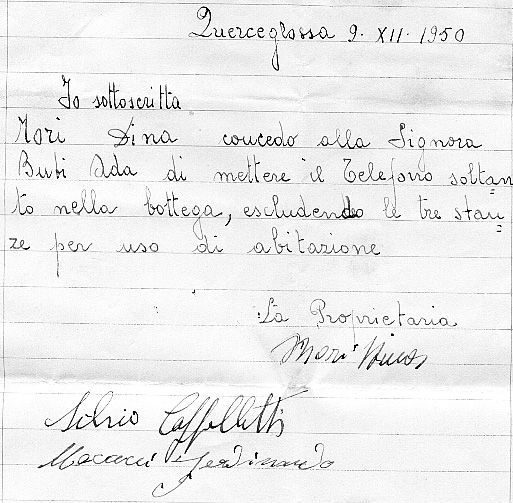 Quercegrossa 9. XII. 1950
Io sottoscritta
Mori Dina concedo alla Signora
Bubi Ada di mettere il Telefono soltan
to nella bottega, escludendo le tre stan
ze per uso di abitazione
La Proprietaria
Mori Dina
Silvio Cappelletti
Macucci Ferdinando